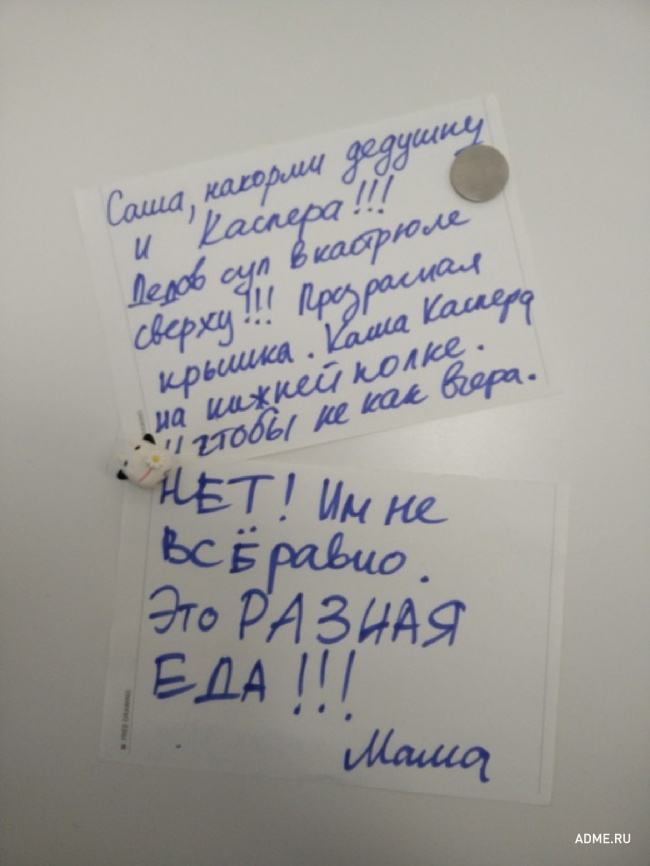 Саша, накорми дедушку
и Каспера!!!
Дедов суп в кастрюле
сверху!!! Прозрасная
крышка. Каша Каспера
на нижней полке.
И чтобы не как вчера.
НЕТ! Им не
ВСЁ равно.
Это РАЗНАЯ
ЕДА!!!
Мама
ADME.RU